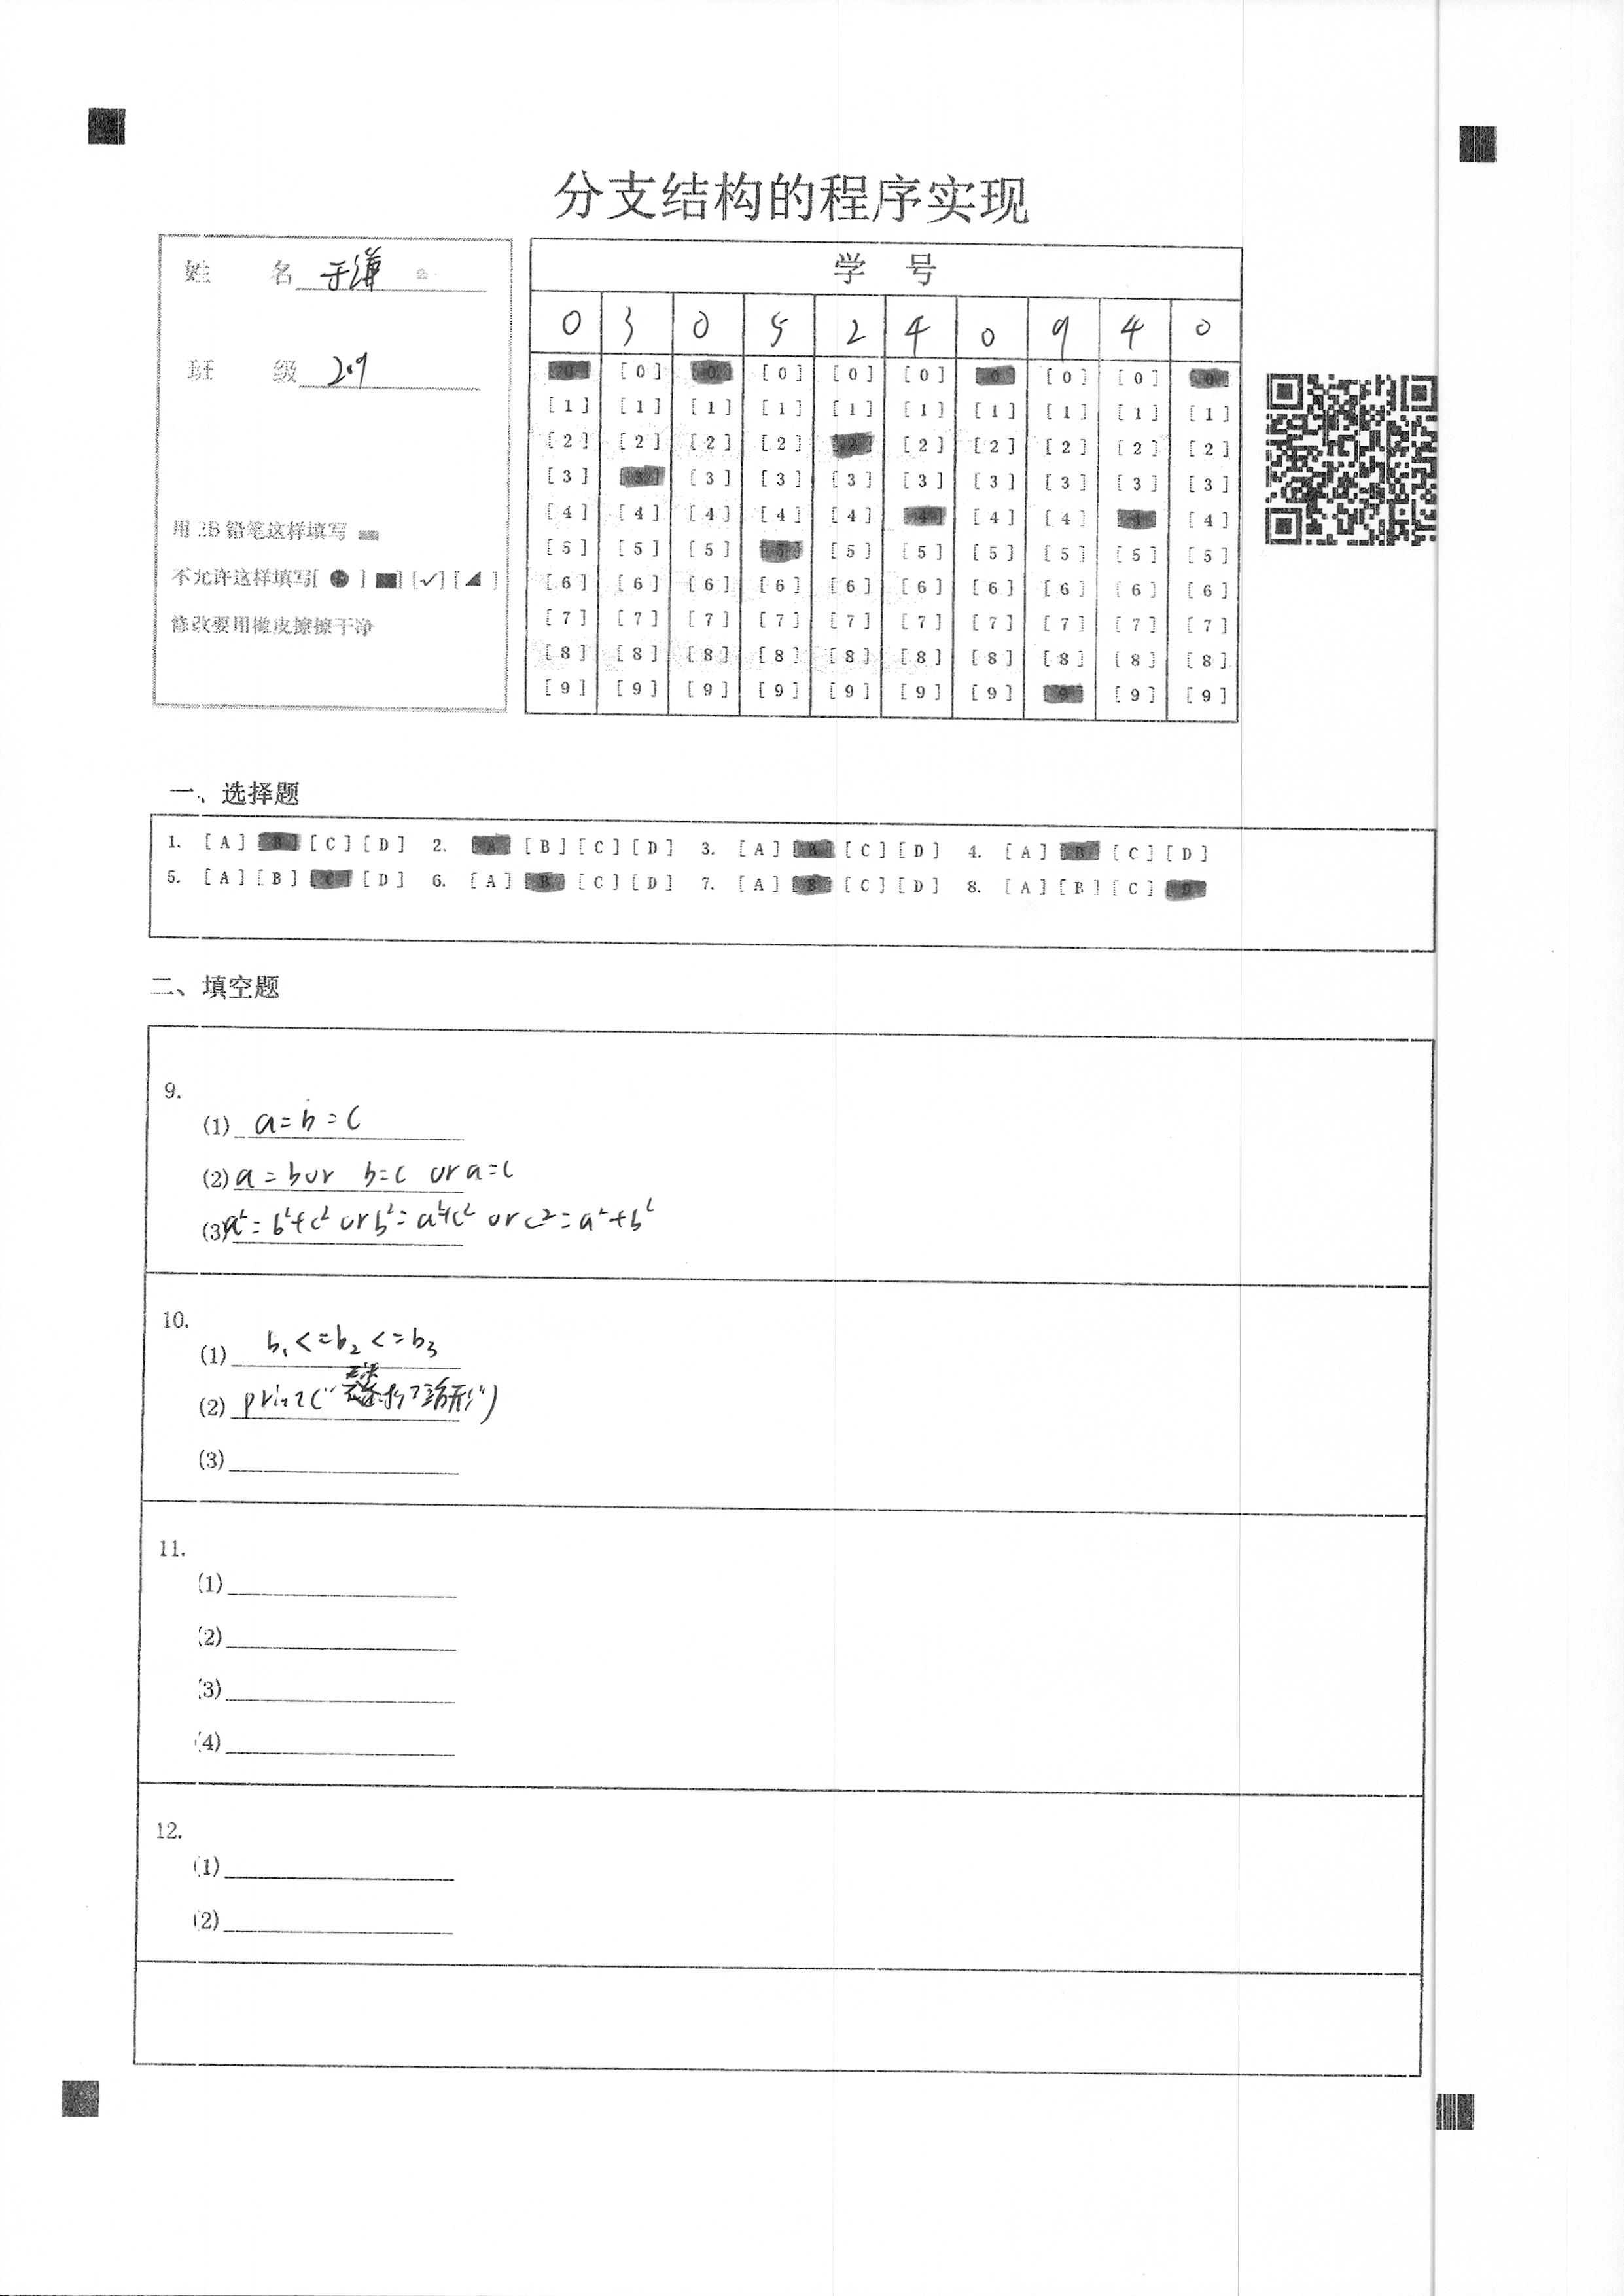 分支结构的程序实现
姓 名 于谦
班 级 2.9
用 2B 铅笔这样填写
不允许这样填写[ ● ] ■] [✓] [◢ ]
修改要用橡皮擦擦干净
学 号
0 3 0 5 2 4 0 9 4 0
[0] [0] [0] [0] [0] [0] [0] [0] [0] [0]
[1] [1] [1] [1] [1] [1] [1] [1] [1] [1]
[2] [2] [2] [2] [2] [2] [2] [2] [2] [2]
[3] [3] [3] [3] [3] [3] [3] [3] [3] [3]
[4] [4] [4] [4] [4] [4] [4] [4] [4] [4]
[5] [5] [5] [5] [5] [5] [5] [5] [5] [5]
[6] [6] [6] [6] [6] [6] [6] [6] [6] [6]
[7] [7] [7] [7] [7] [7] [7] [7] [7] [7]
[8] [8] [8] [8] [8] [8] [8] [8] [8] [8]
[9] [9] [9] [9] [9] [9] [9] [9] [9] [9]
一、选择题
1. [A] [B] [C] [D] 2. [A] [B] [C] [D] 3. [A] [B] [C] [D] 4. [A] [B] [C] [D]
5. [A] [B] [C] [D] 6. [A] [B] [C] [D] 7. [A] [B] [C] [D] 8. [A] [B] [C] [D]
二、填空题
9.
(1) a=b=c
(2) a=b or b=c or a=c
(3) a²=b²+c² or b²=a²+c² or c²=a²+b²
10.
(1) b₁<=b₂<=b₃
(2) print("无法构了三角形")
(3)
11.
(1)
(2)
(3)
(4)
12.
(1)
(2)